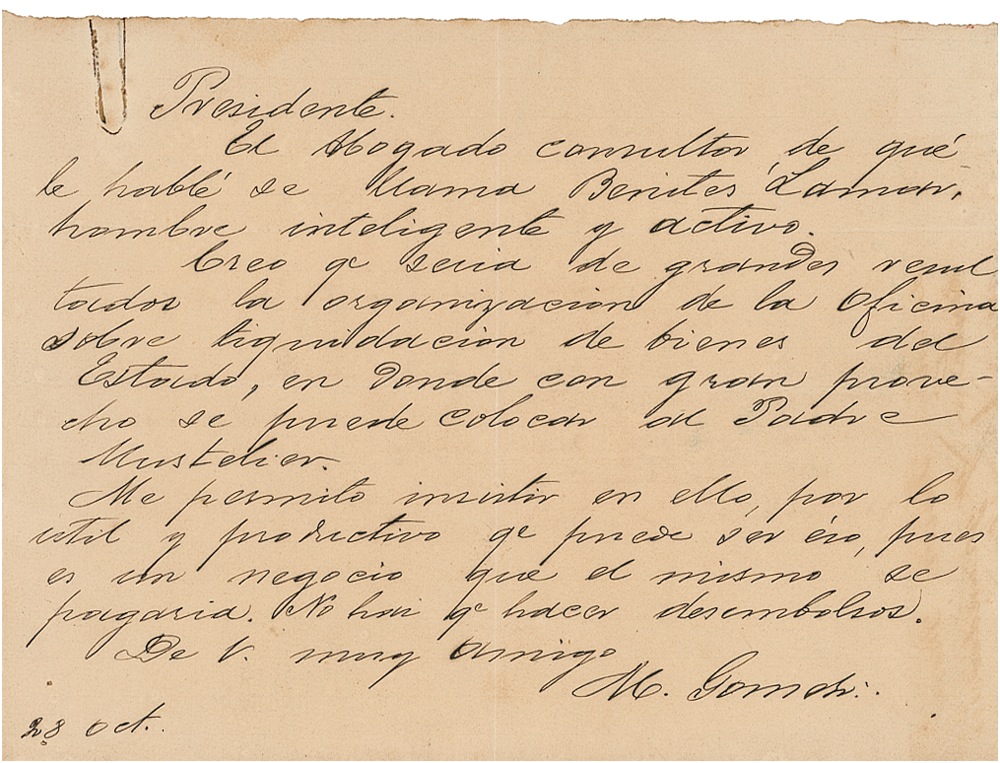 Presidente.
El Abogado consultor, de qué
le hablé se llama Benites Lamar,
hombre inteligente y activo.
Creo qe seria de grandes resul
tados la organizacion de la oficina
sobre liquidacion de bienes del
Estado, en donde con gran prove-
cho se puede colocar al Padre
Mustelier.
Me permito insistir en ello, por lo
util y productivo qe puede ser éso, pues
es un negocio que el mismo se
pagaria. No hai qe hacer desembolsos.
De V. muy amigo
M.
28 Oct.